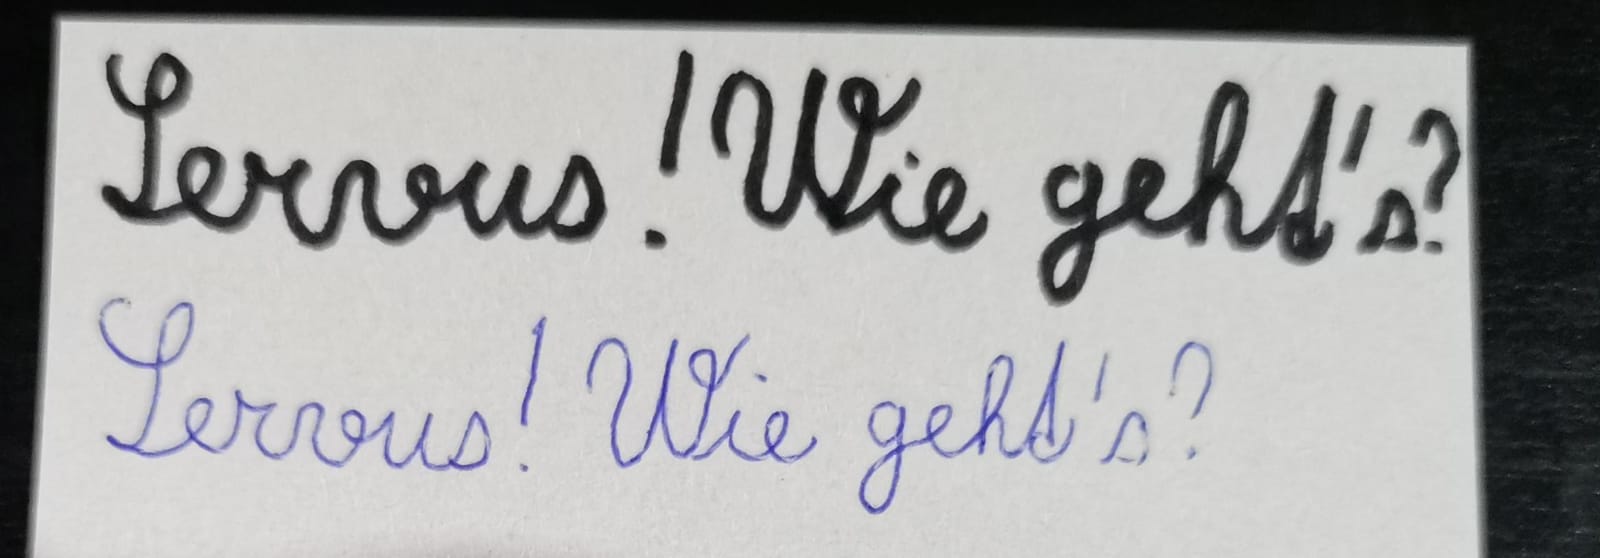 Servus! Wie geht's?
Servus! Wie geht's?